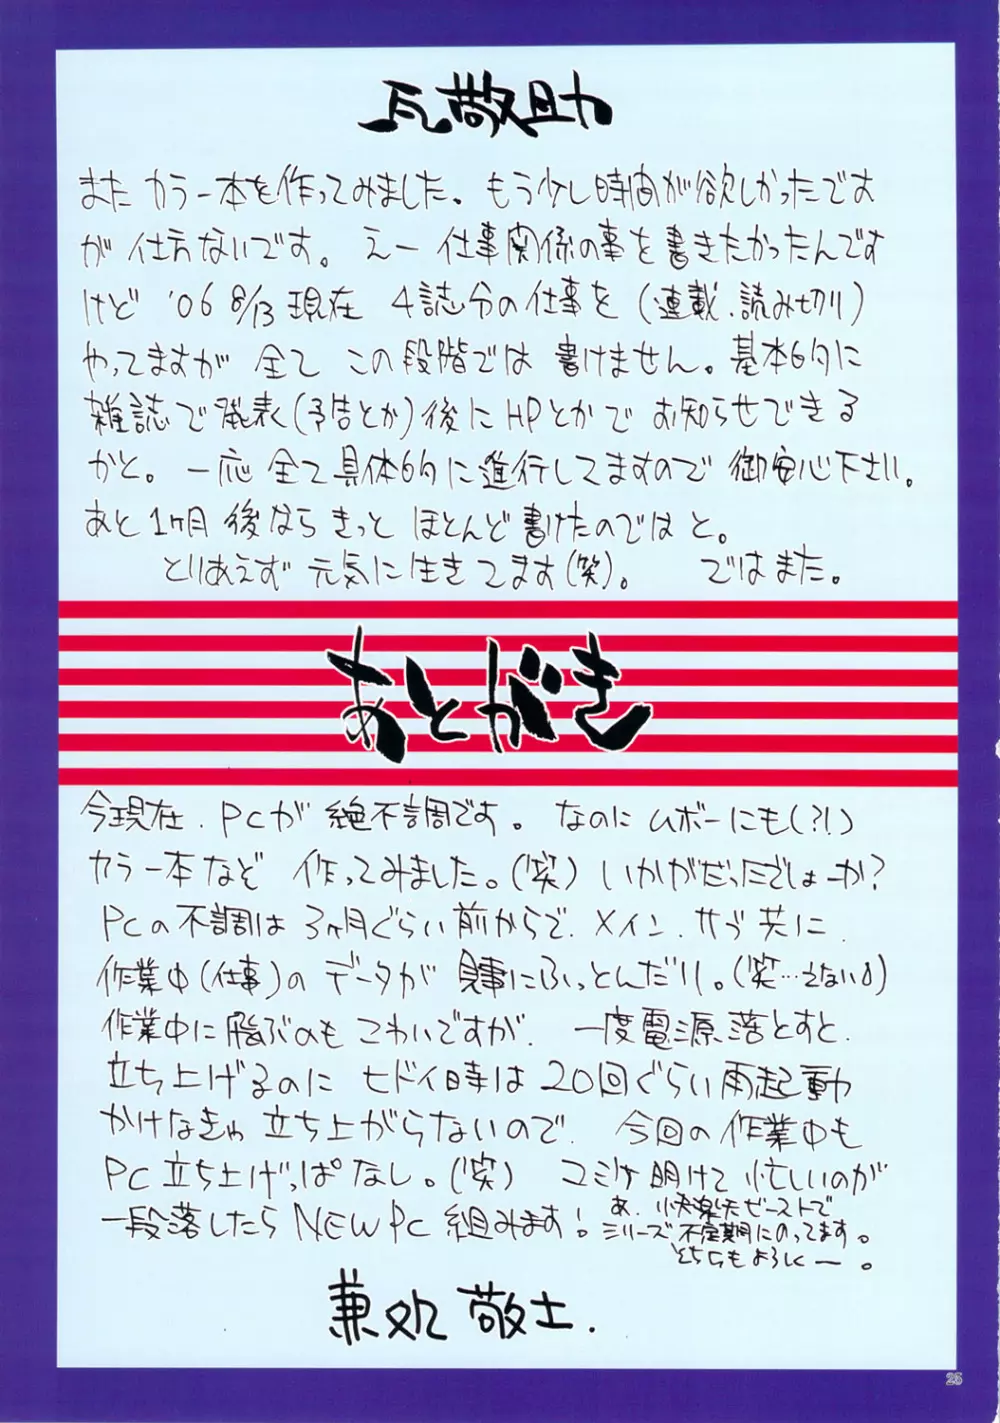 瓦敬助
また カラー本を作ってみました。もう少し時間が欲しかったです
が 仕方ないです。えー 仕事関係の事を書きたかったんです
けど '06 8/13 現在 4誌分の仕事を(連載、読み切り)
やってますが 全て この段階では 書けません。基本的に
雑誌で発表(予告とか)後にHPとかで お知らせできる
かと。一応 全て具体的に進行してますので 御安心下さい。
あと 1ヶ月 後なら きっと ほとんど書けたのでは と。
とりあえず 元気に生きてます(笑)。ではまた。
あとがき
今現在、PCが 絶不調です。なのに ムボーにも(?!)
カラー本など 作ってみました。(笑) いかがだったでしょーか?
PCの不調は 3ヶ月ぐらい前からで、メイン、サブ共に、
作業中(仕事)の データが 見事にふっとんだり。(笑…えない)
作業中に飛ぶのも こわいですが、一度電源落とすと、
立ち上げるのに ヒドイ時は 20回ぐらい再起動
かけなきゃ 立ち上がらないので、今回の作業中も
PC立ち上げっぱなし。(笑) コミケ明けて 忙しいのが
一段落したら NEW PC 組みます!
あ、快楽天ビーストで
シリーズ不定期にのってます。
そちらもよろしくー。
兼処敬士.
25